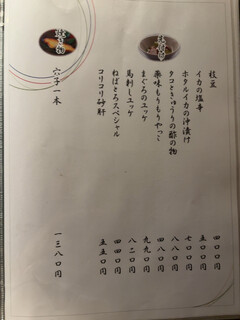 枝豆 四〇〇円
イカの塩辛 五〇〇円
ホタルイカの沖漬け 七〇〇円
タコときゅうりの酢の物 八八〇円
薬味もりもりやっこ 四八〇円
まぐろのユッケ 九九〇円
馬刺しユッケ 八二〇円
ねばとろスペシャル 四四〇円
コリコリ砂肝 五五〇円
六子一本 一三八〇円